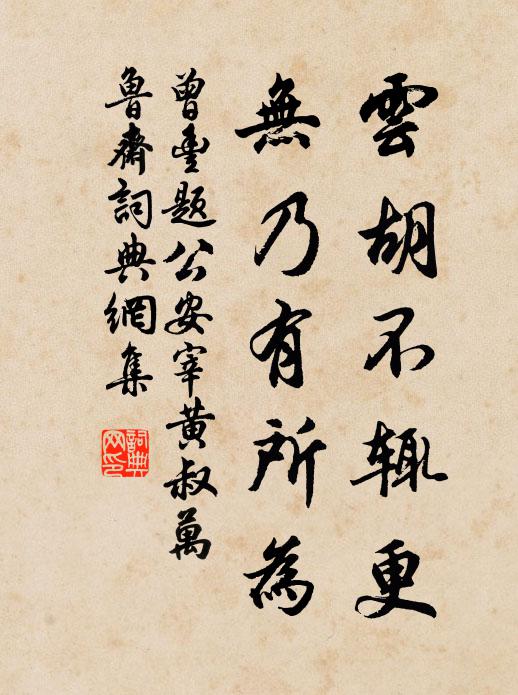 雲胡不辄更
無乃有所為
曾豊題公安宰黃叔萬
魯齋詞典網集
詞典網印